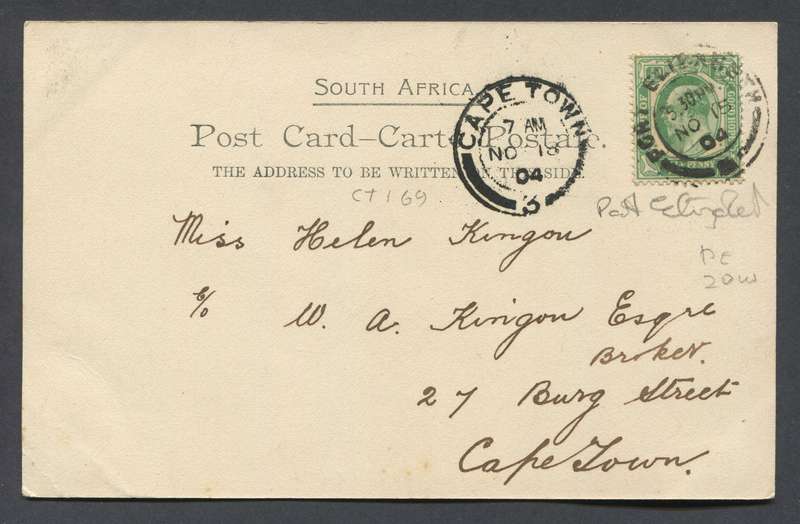 SOUTH AFRICA
Post Card–Carte Postale.
THE ADDRESS TO BE WRITTEN ON THIS SIDE
CAPE TOWN
7 AM
NO 18
04
3
PORT ELIZABETH
3.30PM
NO 15
04
CT 169
Port Elizabeth
PE
Miss Helen Kingon
c/o W. A. Kingon Esqre
Broker.
27 Burg Street
Cape Town.